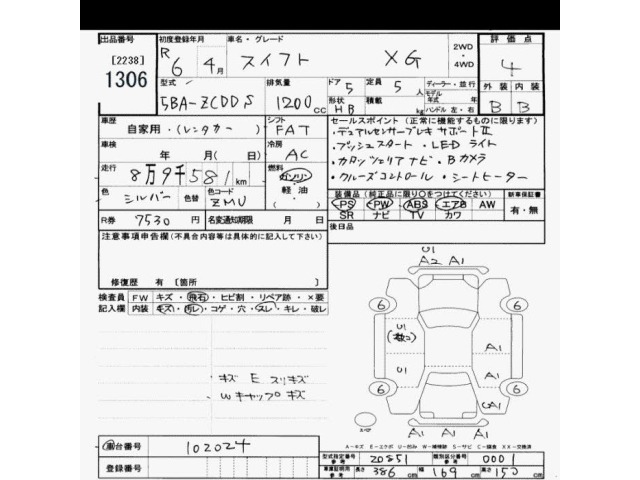 出品番号 初度登録年月 車名・グレード 2WD・4WD 評価点
[2238] R 6 4月 スイフト XG 4
1306
型式 排気量 ドア 5 定員 5人 ディーラー・並行 外装 内装
5BA-ZCDDS 1200cc 形状 HB 積載 kg モデル年式 年 ハンドル 左・右 B B
車歴 シフト セールスポイント(正常に機能するものに限ります)
自家用・(レンタカー) FAT ・デュアルセンサーブレーキサポートⅡ
車検 冷房 ・プッシュスタート ・LEDライト
年 月(日) AC ・カロッツェリアナビ ・Bカメラ
走行 燃料 ・クルーズコントロール ・シートヒーター
8万9千581km ガソリン・軽油・
色 色替 色コード 装備品(純正品に限り○をつけてください) 新車保証書
シルバー ZMU PS PW ABS エアB AW 有・無
SR ナビ TV カワ
R券 7530円 名変通知期限 月 日 後日品
注意事項申告欄(不具合内容等は具体的に記入して下さい)
修復歴 有 [箇所
検査員記入欄 FW キズ・飛石・ヒビ割・リペア跡・×要
内装 キズ・汚レ・コゲ・穴・スレ・キレ・破レ
・キズ E スリキズ
Wキャップキズ
U1
A2 A1
6 6
U1 A1
A1
6 6
A1
A1 A1 A1
スペア
A-キズ E-エクボ U-凹み W-補修跡 S-サビ C-腐食 XX-交換済
車台番号 102024
登録番号
型式指定番号 参考 20851 類別区分番号 参考 0001
車庫証明用 参考 長さ 386cm 幅 169cm 高さ 150cm